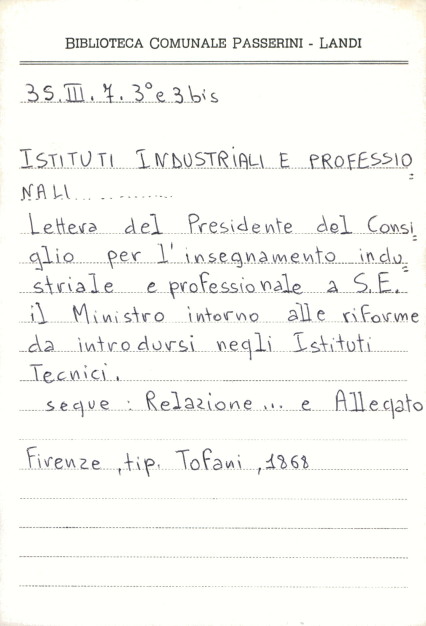 BIBLIOTECA COMUNALE PASSERINI - LANDI
35.III.7.3° e 3 bis
ISTITUTI INDUSTRIALI E PROFESSIO=
NALI..............
Lettera del Presidente del Consi=
glio per l'insegnamento indu=
striale e professionale a S.E.
il Ministro intorno alle riforme
da introdursi negli Istituti
Tecnici.
segue : Relazione... e Allegato
Firenze, tip. Tofani, 1868